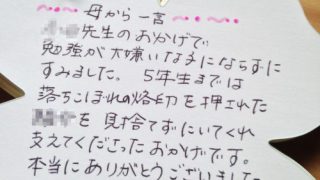 母から一言
先生のおかげで
勉強が大嫌いな子にならずに
すみました。5年生までは
落ちこぼれの烙印を押された
を見捨てずにいてくれ
支えてくださったおかげです。
本当にありがとうございました